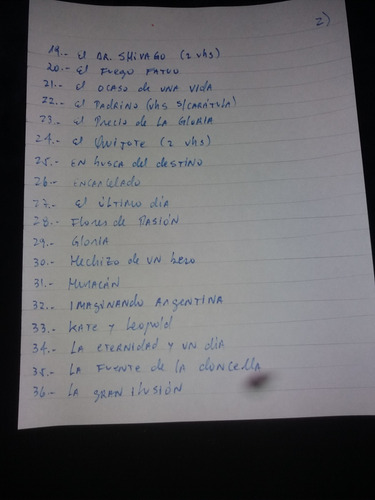 2)
19.- El DR. SHIVAGO (2 vhs)
20.- El Fuego FATUO
21.- El OCASO DE UNA VIDA
22.- El PADRINO (vhs S/CARÁTULA)
23.- El Precio de LA GloRIA
24.- El QuiJote (2 vhs)
25.- EN busca del destino
26.- ENCARCelADO
27.- El último día
28.- Flores de PASIÓN
29.- GloRIA
30.- Hechizo de UN beso
31.- HURACÁN
32.- IMAGINANDO ARGENTINA
33.- KATE y Leopold
34.- LA eterNidad y UN día
35.- LA FUENTE de lA doncella
36.- LA GRAN ilUSIÓN